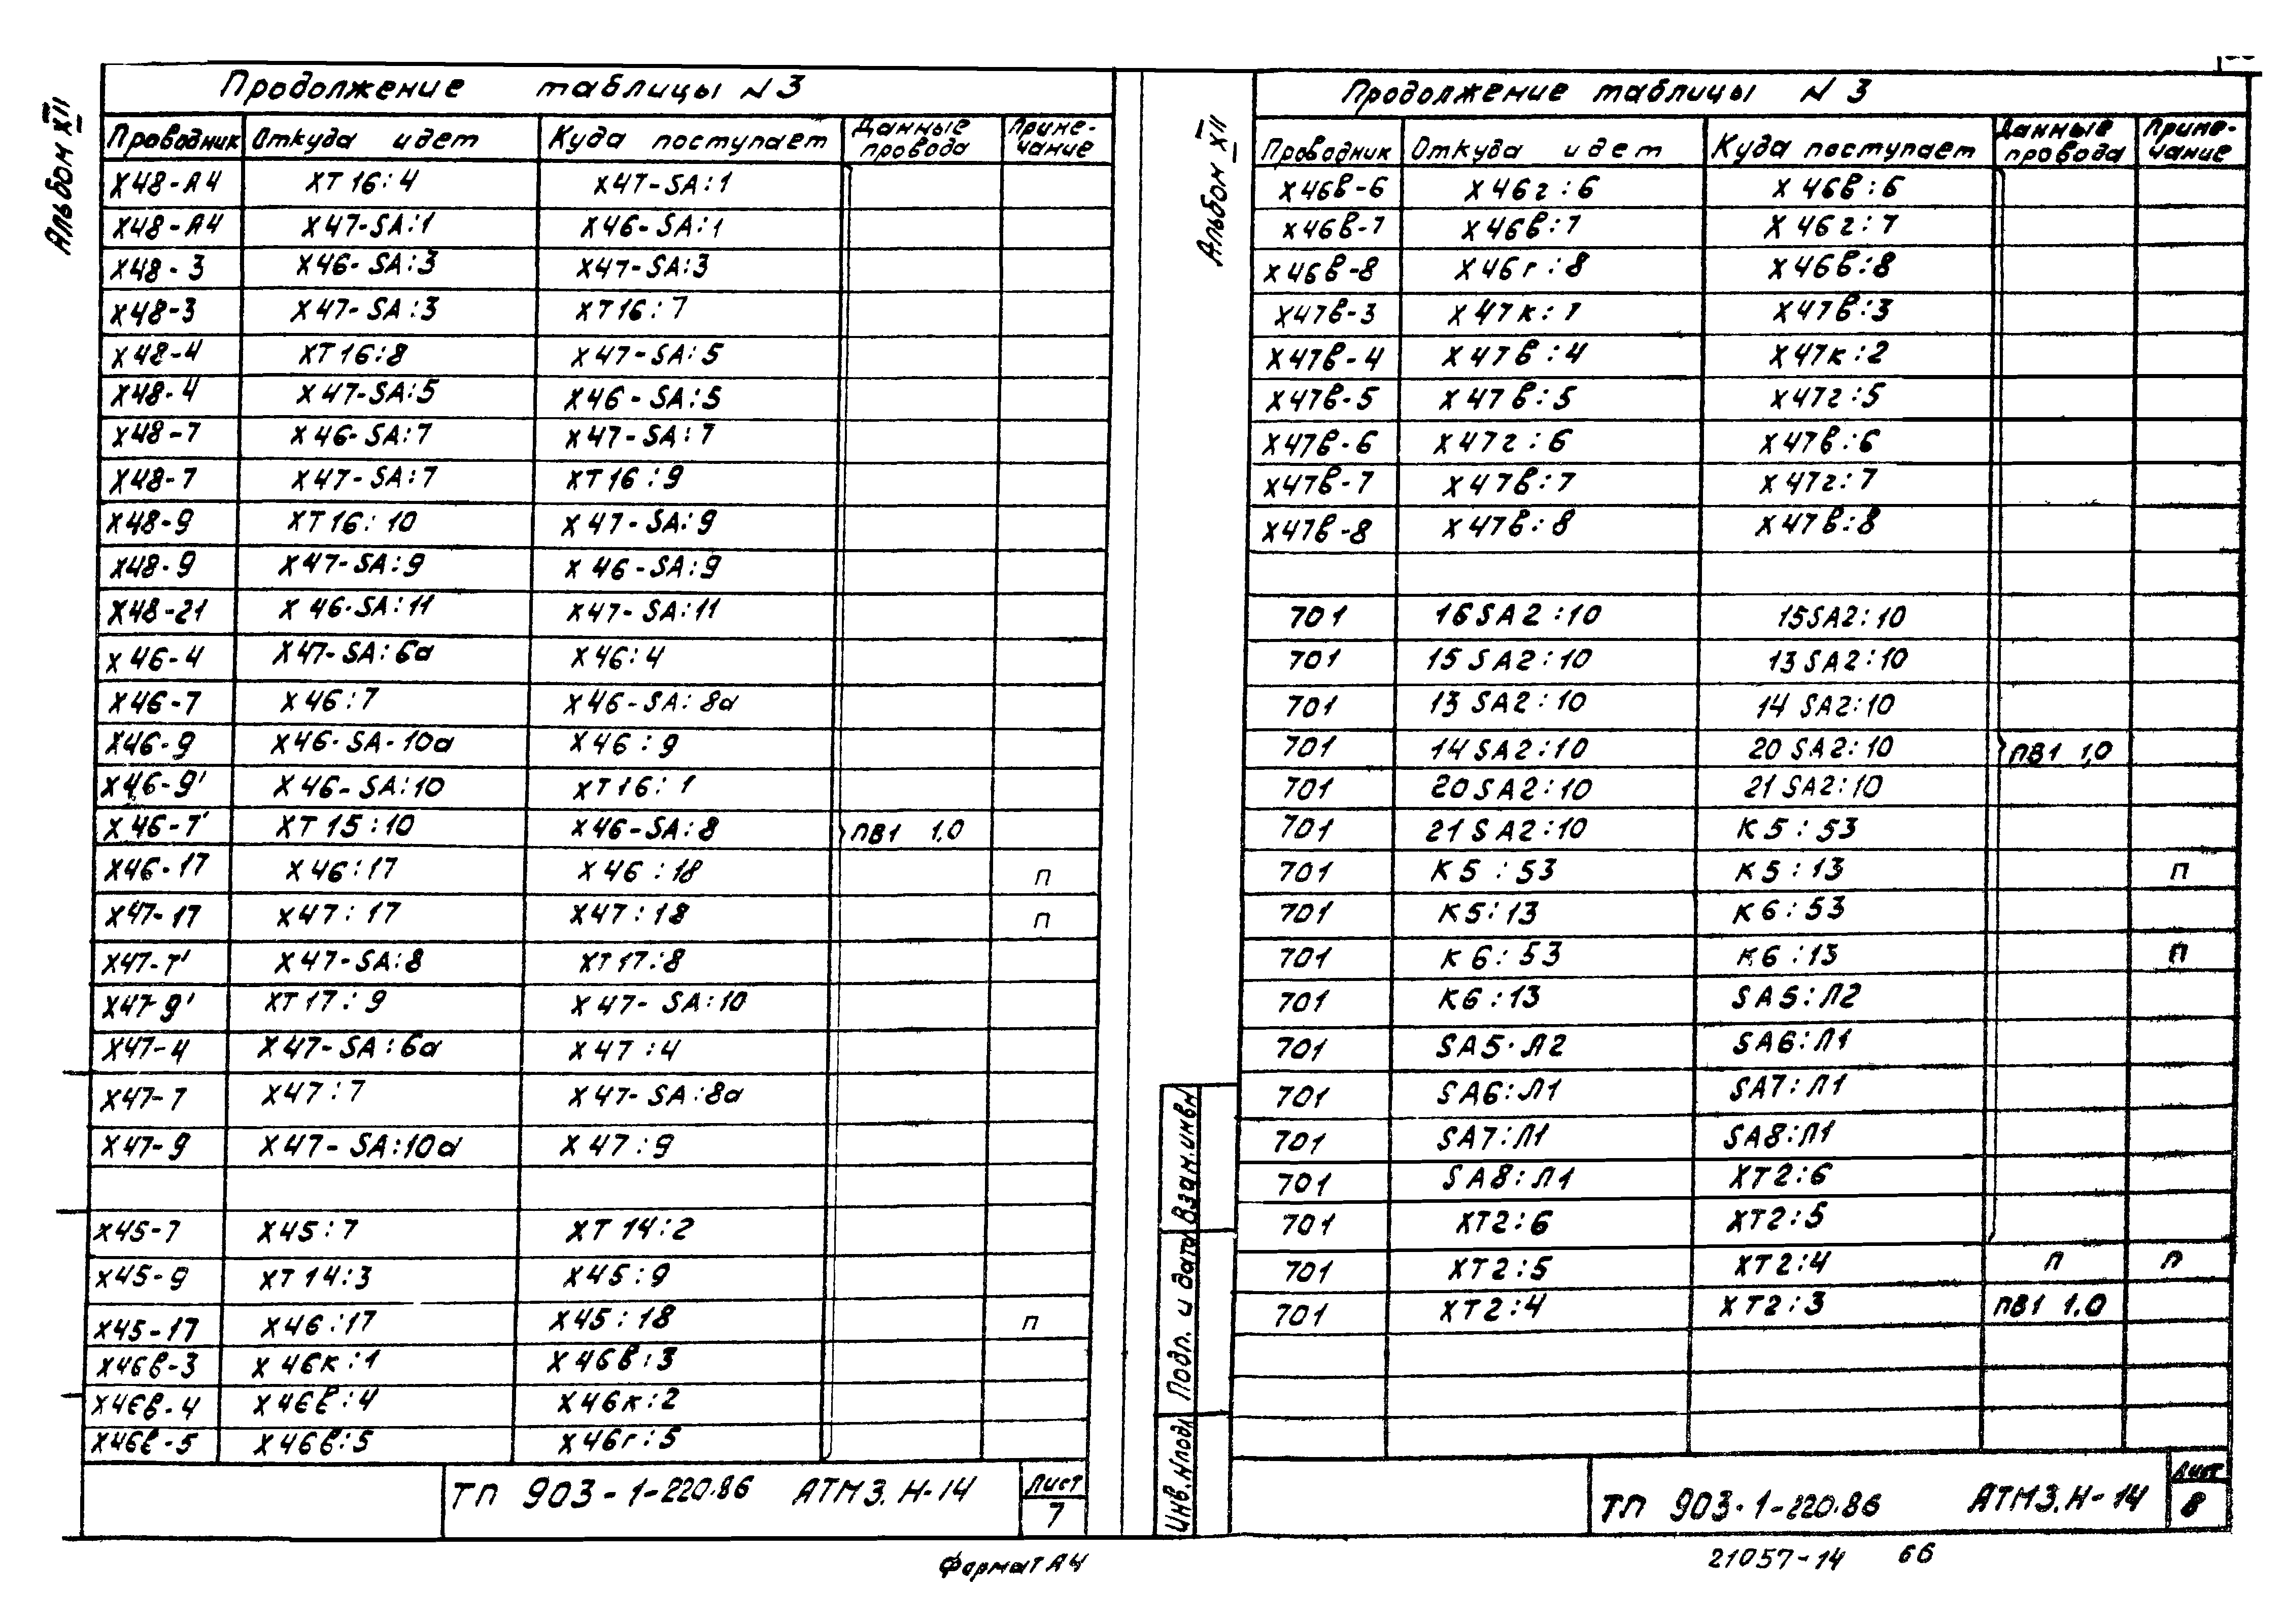 Альбом XII
Продолжение таблицы N 3
Проводник Откуда идет Куда поступает Данные провода Примечание
Х48-А4 ХТ16:4 Х47-SA:1
Х48-А4 Х47-SA:1 Х46-SA:1
Х48-3 Х46-SA:3 Х47-SA:3
Х48-3 Х47-SA:3 ХТ16:7
Х48-4 ХТ16:8 Х47-SA:5
Х48-4 Х47-SA:5 Х46-SA:5
Х48-7 Х46-SA:7 Х47-SA:7
Х48-7 Х47-SA:7 ХТ16:9
Х48-9 ХТ16:10 Х47-SA:9
Х48-9 Х47-SA:9 Х46-SA:9
Х48-21 Х46-SA:11 Х47-SA:11
Х46-4 Х47-SA:6а Х46:4
Х46-7 Х46:7 Х46-SA:8а
Х46-9 Х46-SA-10а Х46:9
Х46-9' Х46-SA:10 ХТ16:1
Х46-7' ХТ15:10 Х46-SA:8 ПВ1 1,0
Х46-17 Х46:17 Х46:18 п
Х47-17 Х47:17 Х47:18 п
Х47-7' Х47-SA:8 ХТ17:8
Х47-9' ХТ17:9 Х47-SA:10
Х47-4 Х47-SA:6а Х47:4
Х47-7 Х47:7 Х47-SA:8а
Х47-9 Х47-SA:10а Х47:9
Х45-7 Х45:7 ХТ14:2
Х45-9 ХТ14:3 Х45:9
Х45-17 Х46:17 Х45:18 п
Х46в-3 Х46к:1 Х46в:3
Х46в-4 Х46в:4 Х46к:2
Х46в-5 Х46в:5 Х46г:5
ТП 903-1-220.86 АТМ3.Н-14 Лист 7
Формат А4
Альбом XII
Продолжение таблицы N 3
Проводник Откуда идет Куда поступает Данные провода Примечание
Х46в-6 Х46г:6 Х46в:6
Х46в-7 Х46в:7 Х46г:7
Х46в-8 Х46г:8 Х46в:8
Х47в-3 Х47к:1 Х47в:3
Х47в-4 Х47в:4 Х47к:2
Х47в-5 Х47в:5 Х47г:5
Х47в-6 Х47г:6 Х47в:6
Х47в-7 Х47в:7 Х47г:7
Х47в-8 Х47в:8 Х47в:8
701 16SA2:10 15SA2:10
701 15SA2:10 13SA2:10
701 13SA2:10 14SA2:10
701 14SA2:10 20SA2:10 ПВ1 1,0
701 20SA2:10 21SA2:10
701 21SA2:10 К5:53
701 К5:53 К5:13 п
701 К5:13 К6:53
701 К6:53 К6:13 п
701 К6:13 SA5:Л2
701 SA5·Л2 SA6:Л1
701 SA6:Л1 SA7:Л1
701 SA7:Л1 SA8:Л1
701 SA8:Л1 ХТ2:6
701 ХТ2:6 ХТ2:5
701 ХТ2:5 ХТ2:4 п п
701 ХТ2:4 ХТ2:3 ПВ1 1.0
Взам.инв.N
Подп. и дата
Инв.Nподл
ТП 903-1-220.86 АТМ3.Н-14 Лист 8
21057-14 66